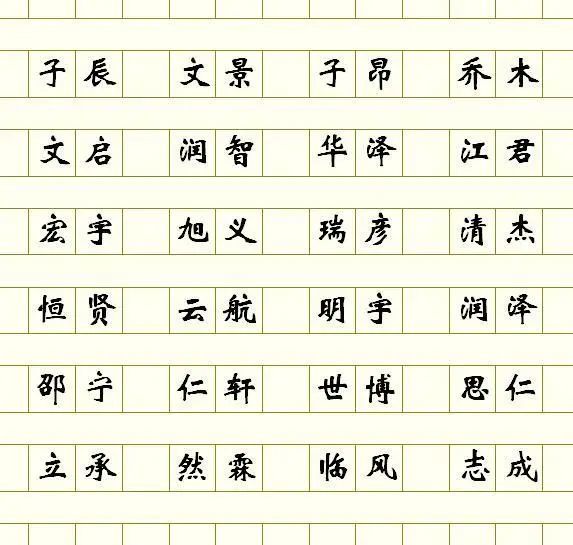 子辰 文景 子昂 乔木
文启 润智 华泽 江君
宏宇 旭义 瑞彦 清杰
恒贤 云航 明宇 润泽
邵宁 仁轩 世博 思仁
立承 然霖 临风 志成